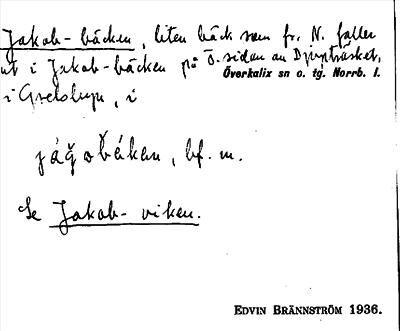 Jakob-bäcken, liten bäck som fr. N. faller
ut i Jakob-bäcken på Ö. sidan av Djupträsket,
Överkalix sn o. tg. Norrb. l.
i
jágobǻken, bf. m.
Se Jakob-viken.
EDVIN BRÄNNSTRÖM 1936.